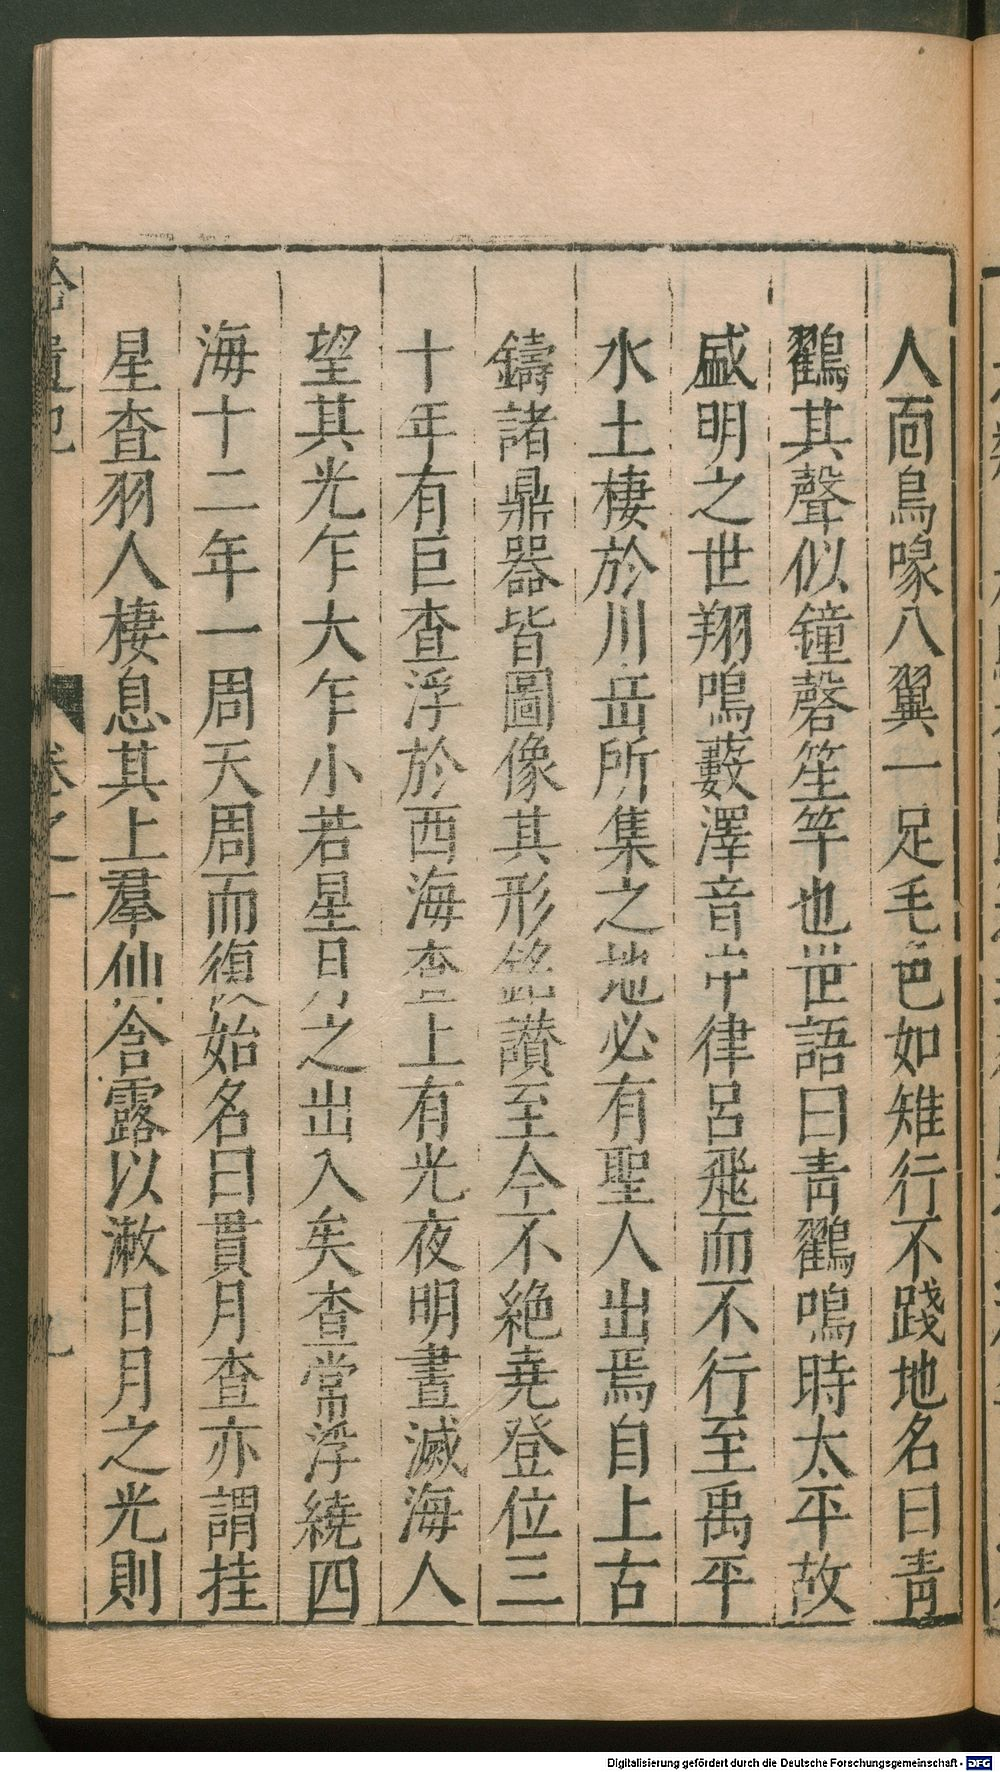 人面鳥喙八翼一足毛色如雉行不踐地名曰青
鸛其聲似鐘磬笙竽也世語曰青鸛鳴時太平故
盛明之世翔鳴藪澤音中律呂飛而不行至禹平
水土棲於川岳所集之地必有聖人出焉自上古
鑄諸鼎器皆圖像其形銘讚至今不絶堯登位三
十年有巨查浮於西海查上有光夜明晝滅海人
望其光乍大乍小若星月之出入矣查常浮繞四
海十二年一周天周而復始名曰貫月查亦謂挂
星查羽人棲息其上羣仙含露以漱日月之光則
拾遺記
卷之一
九
Digitalisierung gefördert durch die Deutsche Forschungsgemeinschaft - DFG